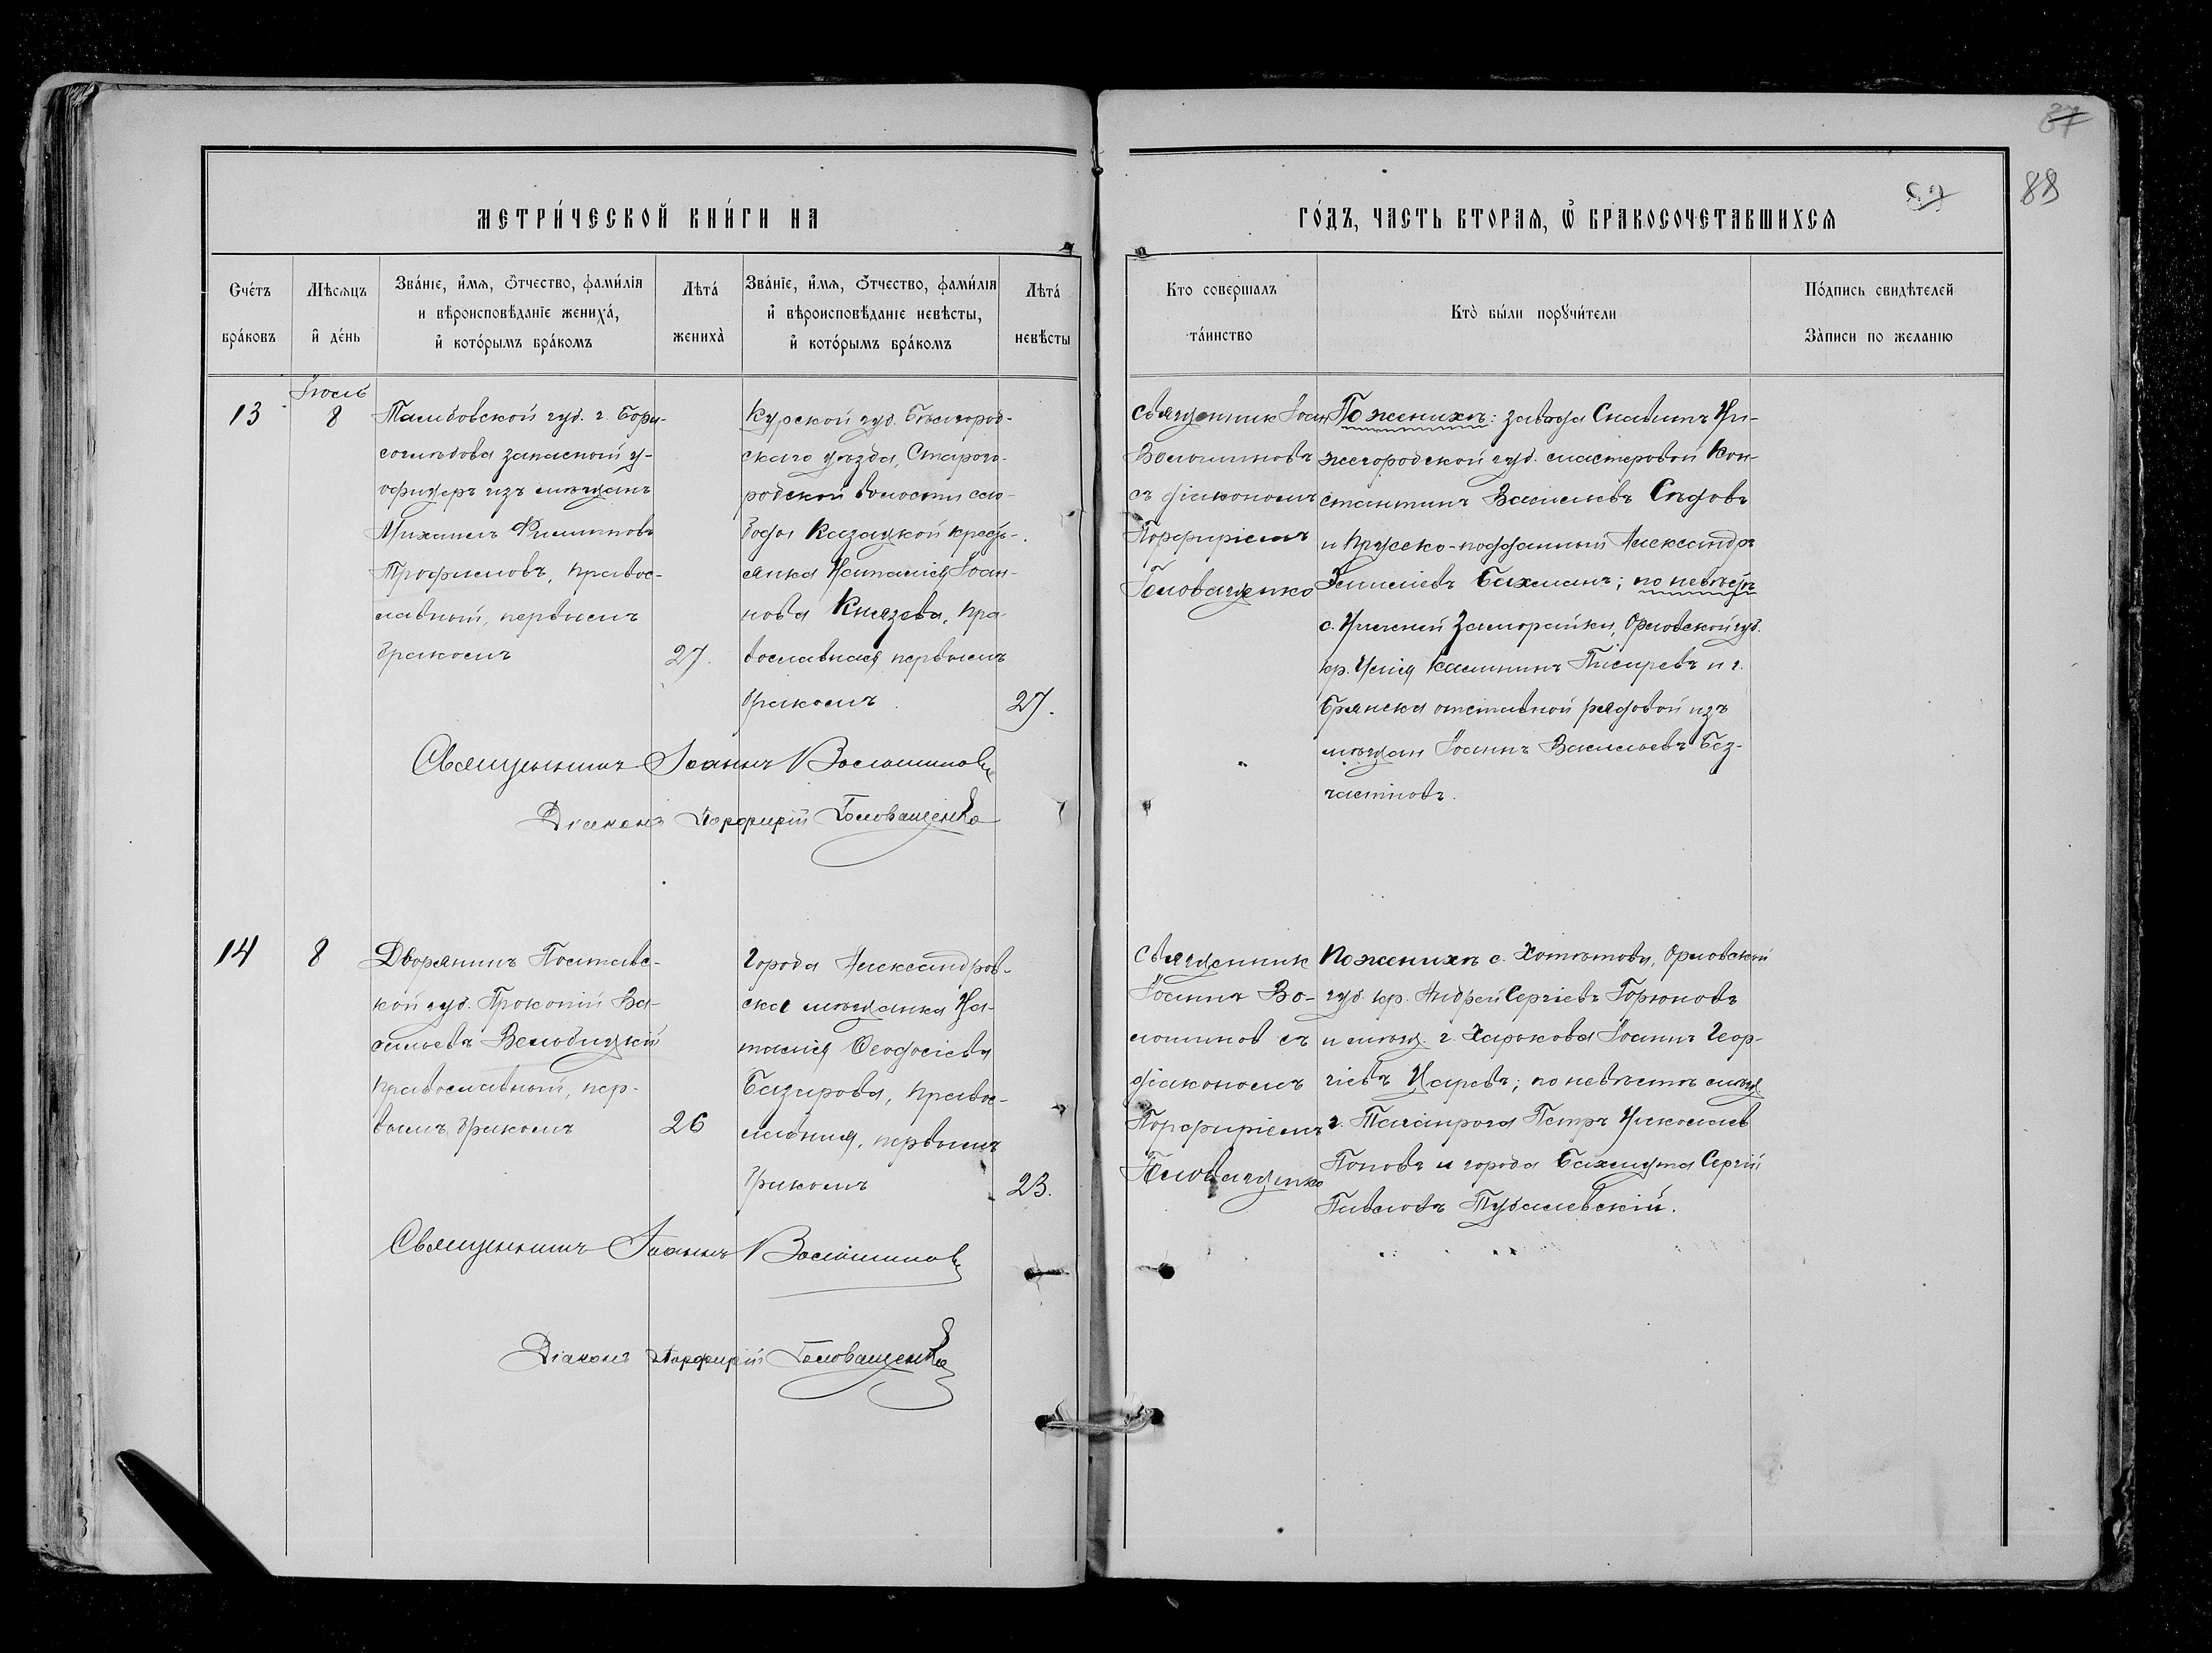 87
88
МЕТРИ́ЧЕСКОЙ КНИ́ГИ НА
ГО́ДЪ, ЧАСТЬ ВТОРАѦ, Ѡ҆ БРАКОСОЧЕТАВШИХСѦ
Сче́тъ бра́ковъ
Мѣсѧцъ и҆ де́нь
Зва́нїе, и҆́мѧ, ѻ҆́тчество, фами́лїѧ
и вѣроисповѣ́данїе жениха́,
и҆ кото́рымъ бра́комъ
Лѣта́ жениха̀
Зва́нїе, и҆́мѧ, ѻ҆́тчество, фами́лїѧ
и҆ вѣроисповѣ́данїе невѣ́сты,
и҆ кото́рымъ бра́комъ
Лѣта́ невѣ́сты
Кто соверша́лъ
та́инство
Кто̀ бы́ли порꙋчи́тели
По́дпись свидѣ́телей
За́писи по жела́нїю
13
Іюль
8
Тамбовской губ. г. Бори-
соглѣбова запасный у-
офицеръ изъ мѣщанъ
Михаилъ Филиповъ
Трофимовъ, правос-
лавный, первымъ
бракомъ
27.
Курской губ. Бѣлгород-
скаго уѣзда, Старого-
родской волости сло-
боды Казацкой кресть-
янка Наталія Іоан-
нова Князева, пра-
вославная первымъ
бракомъ
27.
Священникъ Іоан
Волошиновъ
съ діакономъ
Порфиріемъ
Головащенко
По женихѣ: завода Ни-
жегородской губ. мастеровой Кон-
стантинъ Васильевъ Сѣдовъ
и прусско-подданный Александръ
Бахманъ; по невѣстѣ
с. Орловской губ.
кр. Илія Писаревъ и г.
Брянска отставной рядовой изъ
мѣщан Іоаннъ Васильевъ Без-
частновъ.
Священникъ Іоаннъ Волошиновъ
Діаконъ Порфирій Головащенко
14
8
Дворянинъ Полтавс-
кой губ. Прокопій Ва-
сильевъ Велобицкій
православный, пер-
вымъ бракомъ
26
Города Александров-
ска мѣщанка На-
талія Ѳеодосіева
Базарова, правос-
лавная, первымъ
бракомъ
23.
Священник
Іоаннъ Во-
лошинов съ
діакономъ
Порфиріемъ
Головащенко
По женихѣ с. Хотѣтова, Орловской
губ. кр. Андрей Сергіевъ Горюновъ
и мѣщ. г. Харькова Іоаннъ Геор-
гіевъ Царевъ; по невѣстѣ мѣщ.
г. Таганрога Петръ Николаев
Поповъ и города Бахмута Сергій
Павловъ Тубалевскій.
Священникъ Іоаннъ Волошиновъ
Діаконъ Порфирій Головащенко